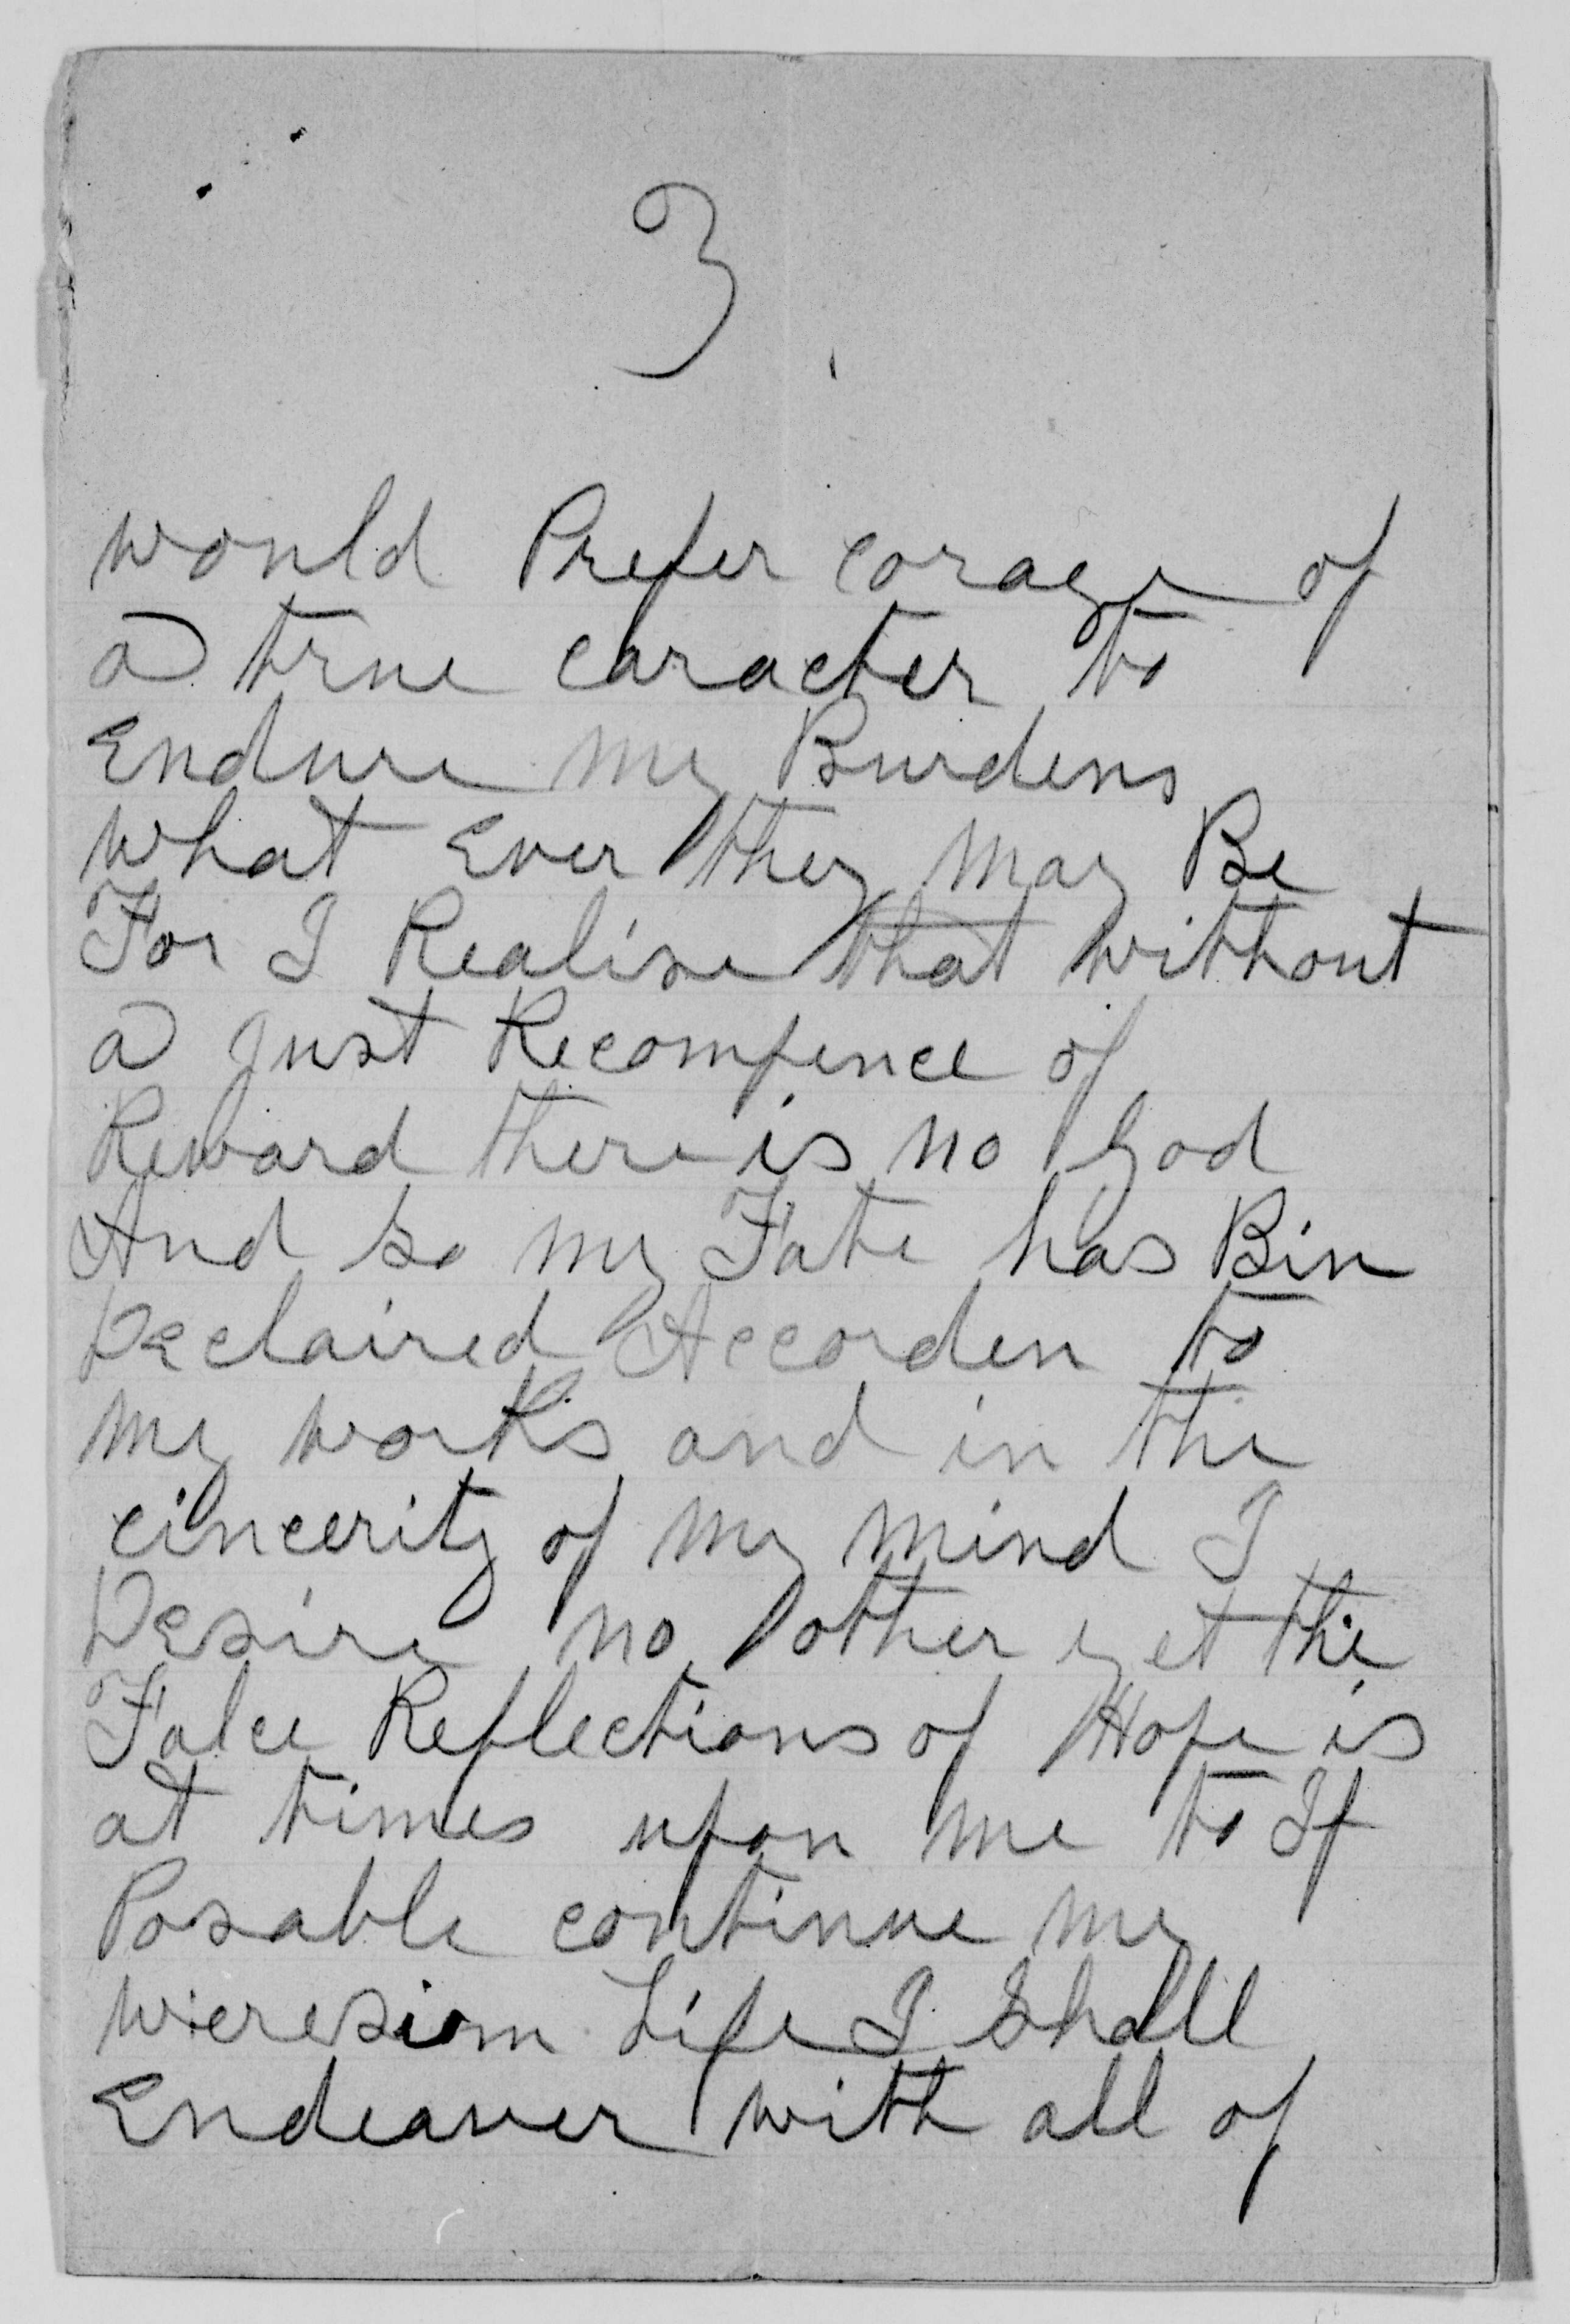 3
would Prefer corage of
a true caracter to
Endure my Burdens
what Ever they may Be
For I Realise that without
a just Recompence of
Reward there is no God
And so my Fate has Bin
Declaired Accorden to
my works and in the
cincerity of my mind I
Desire no other yet the
Falce Reflections of Hope is
at times upon me to If
Posable continue my
wieresium Life I Shall
Endeaver with all of